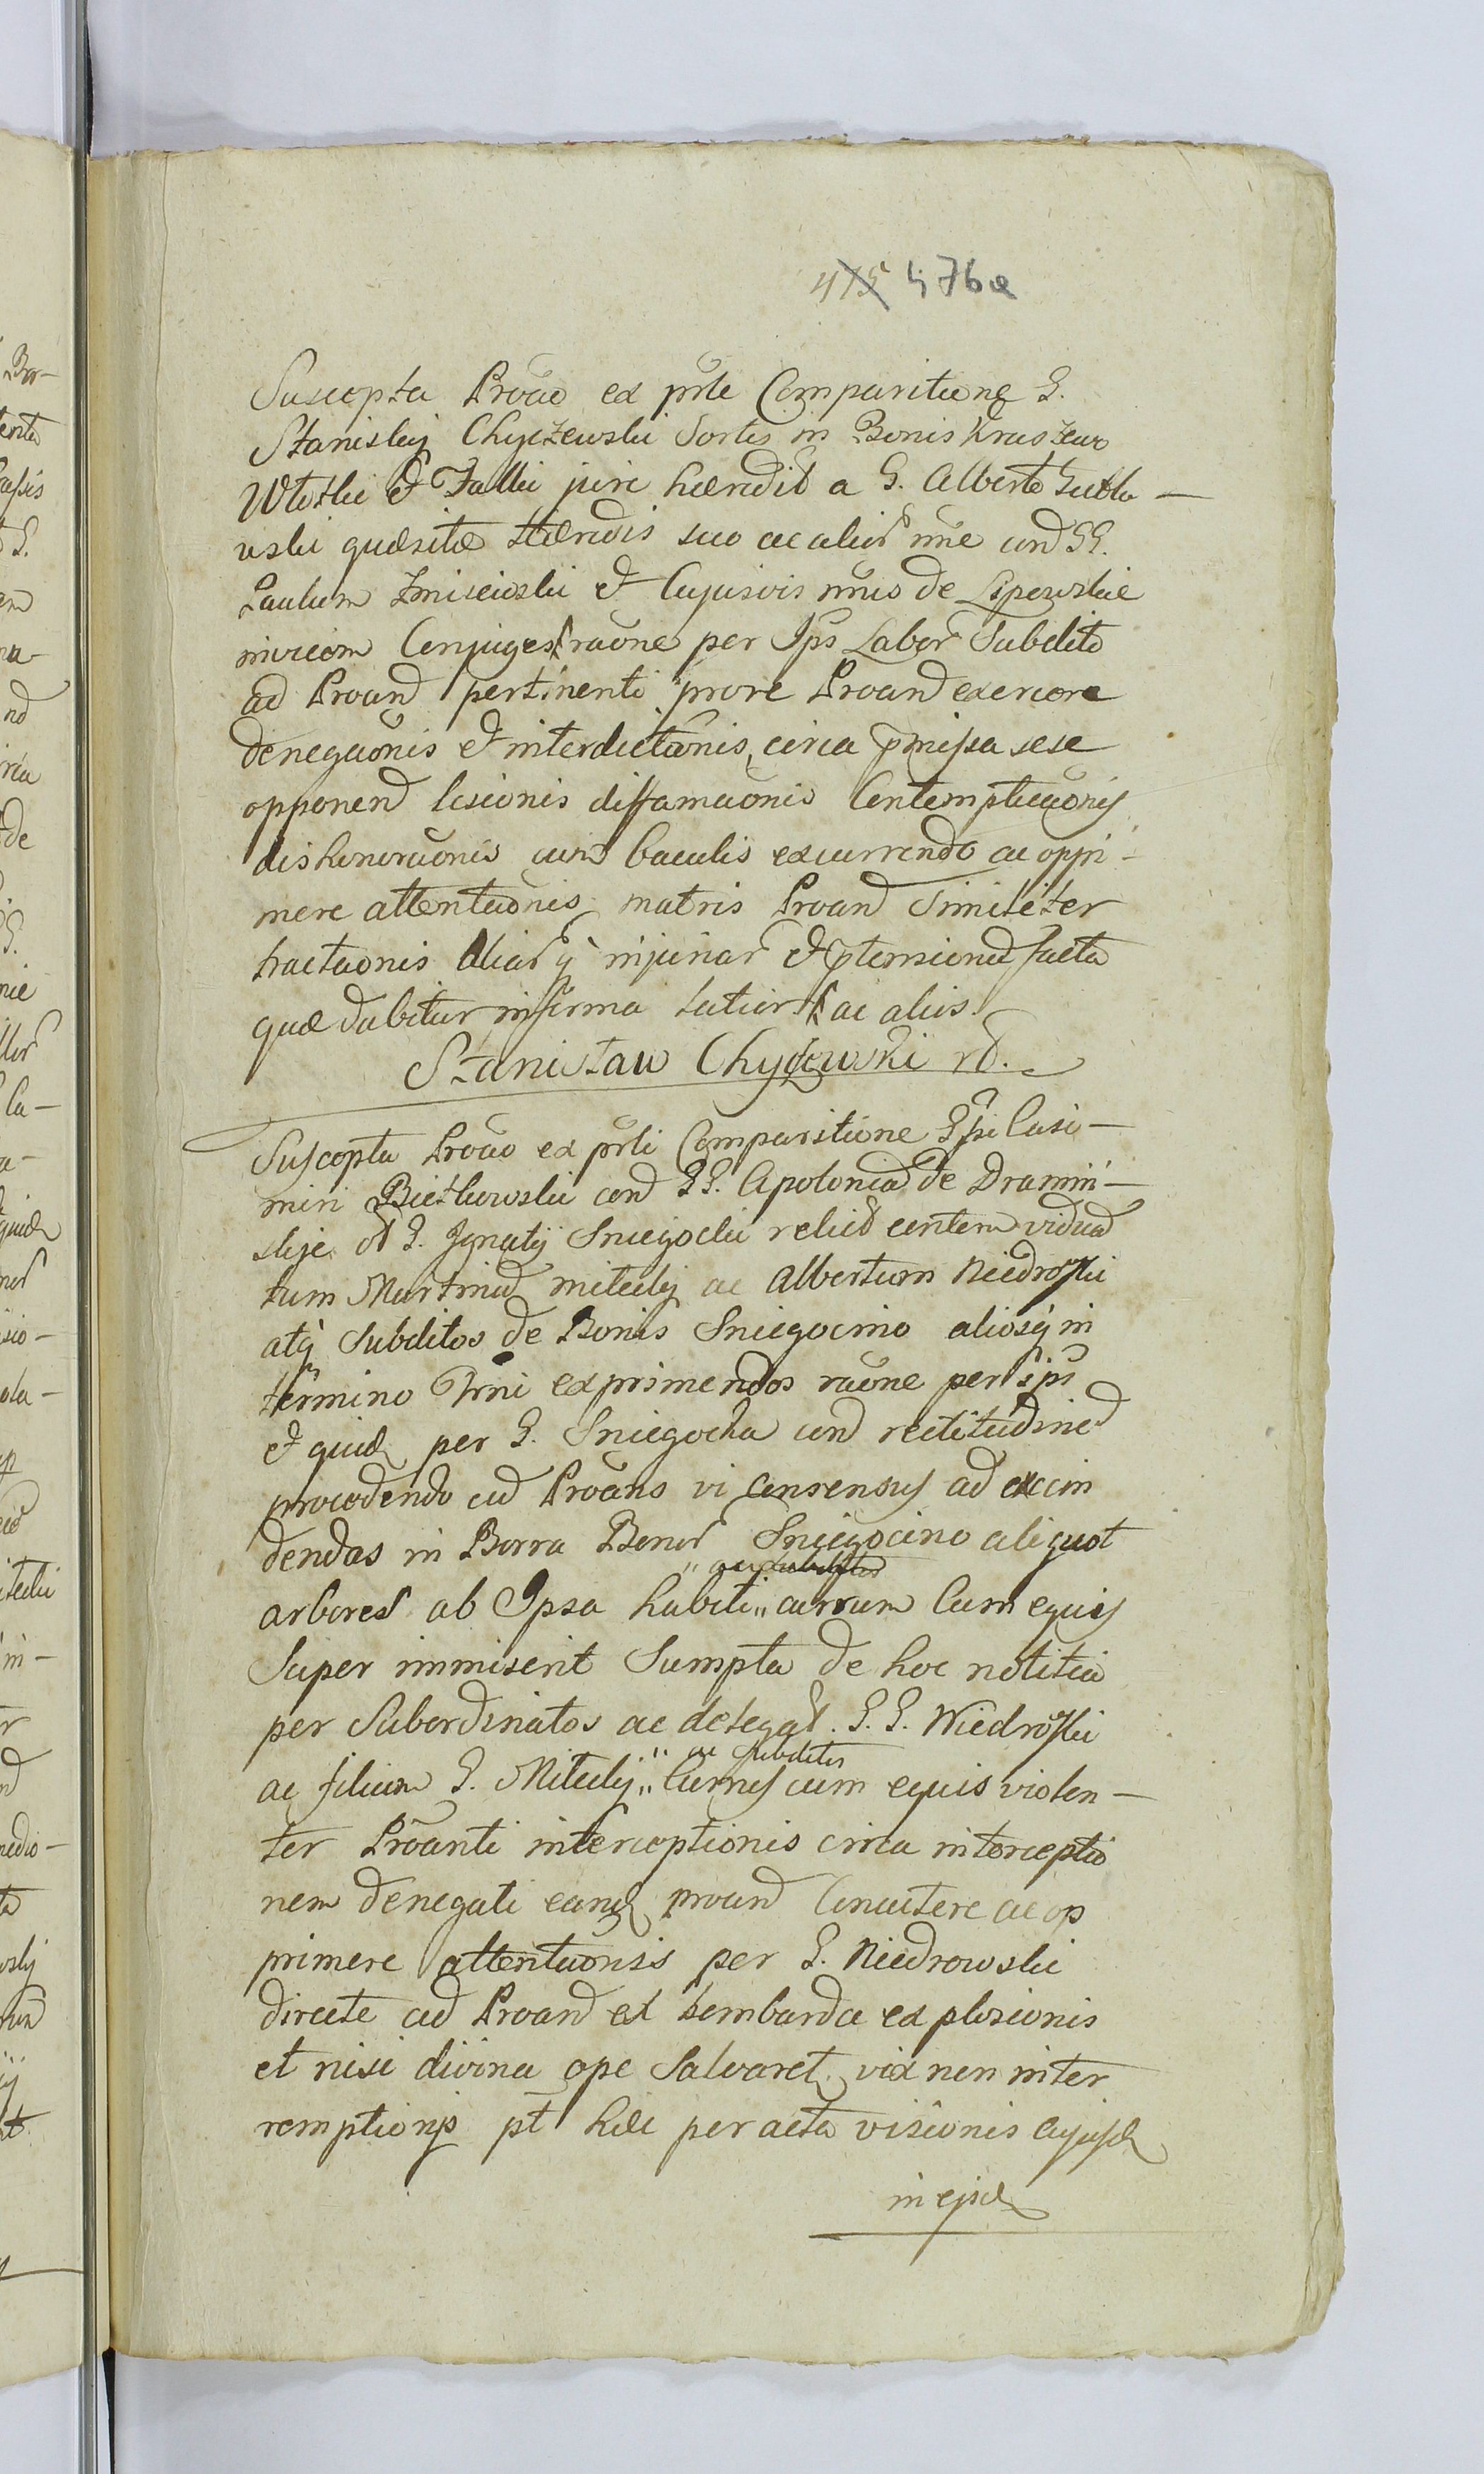 475 476a
Suscepta Proāo ex prlē Comparitione G.
Stanislaij Chyczewski Sortis in Bonis Kruszewo
Wtotki et Falki jure hæredit a G. Alberto
wski quæsitæ Hæredis suo ac alior nnē con GG.
Paulum et Cujusvis nnīs de Lipowskie
invicem Conjuges raōne per Ips Labor Subdito
ad Proand pertinenti prove Proand exercere
denegaōnis et interdictionis, circa pmissa sese
opponend lesionis diffamaōnis Contempticaōnis
dishonoraōnis cum baculis excurrendo ac oppri-
mere attentaōnis matris Proand Similiter
tractaōnis aliarq injuriar et ptensionū facta
quæ dabitur in forma latior ac aliis
Stanisław Chyczewski rd.
Suscepta Proāo ex prlī Comparitione G. Casi-
miri Bietkowski con GG. Apolonia de Dramiń-
skije ol G. Ignatij Sniegocki relict contem vidua
tum Martinū Miteckj ac Albertum Niedrowski
atq Subditos de Bonis Sniegocino aliosq in
termino Prni exprimendos raōne per ips
et quid per G. Sniegocka con rectitudine
procedendo cū Proāns vi Consensus ad excin
dendas in Borra Bonor Sniegocino aliquot
arbores ab Ipsa habiti „ currum Cum equis
Super immiserit Sumpta de hoc notitia
per Subordinatos ac delegat. G. G. Niedrowski
ac filium G. Miteckj „ ac subditos „ Currus cum equis violen-
ter Proānti interceptionis circa interceptio
nem denegati proand Concutere ac op
primere attentaonis per G. Niedrowski
directe ad Proand ex bombarda explosionis
et nisi divina ope Salvaret, vix non inter
remptionis pt hæc per acta visionis Cujusd
in ejsd